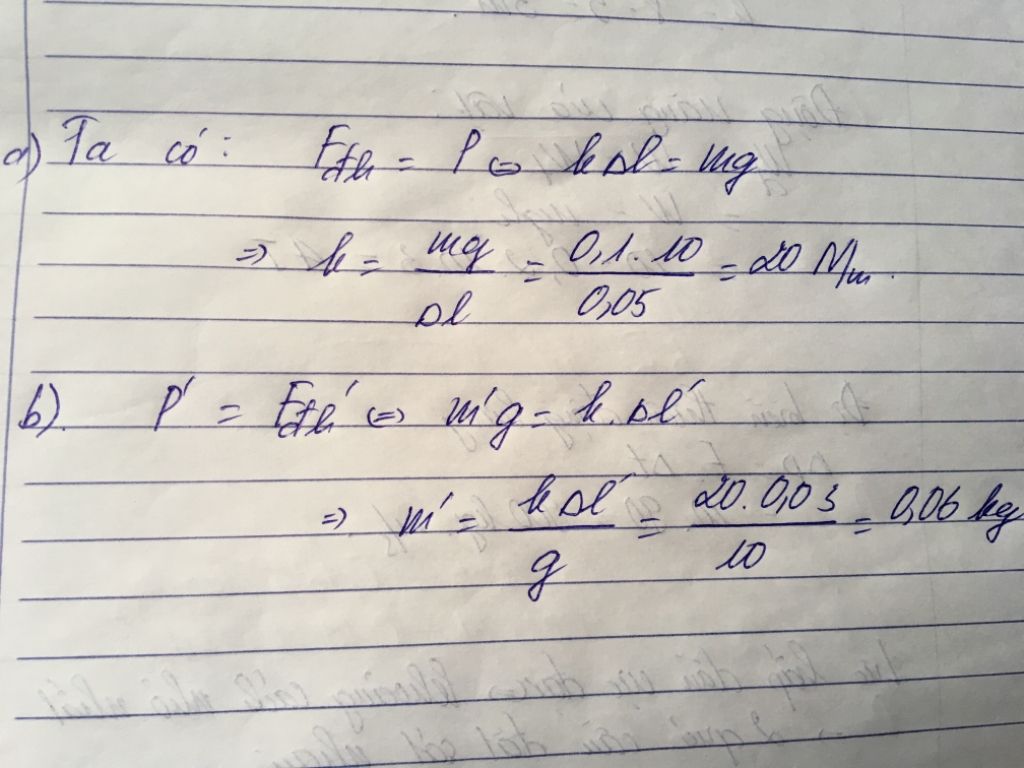 a) Ta có: Fđh = P ⇔ kΔl = mg
⇒ k = mg/Δl = 0,1.10/0,05 = 20 N/m.
b). P' = Fđh' ⇔ m'g = k.Δl'
⇒ m' = kΔl'/g = 20.0,03/10 = 0,06 kg